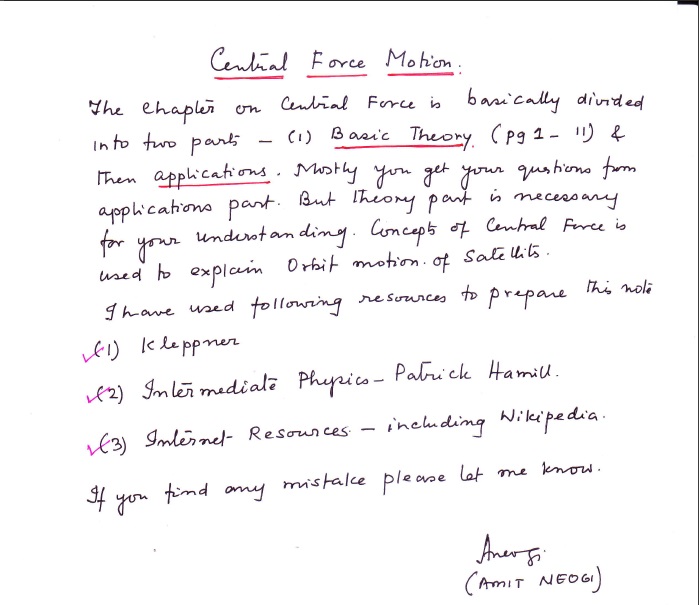 Central Force Motion.
The chapter on Central Force is basically divided
into two parts – (1) Basic Theory. (pg 1 - 11) &
Then applications. Mostly you get your questions from
applications part. But Theory part is necessary
for your understanding. Concepts of Central Force is
used to explain Orbit motion of Satellites.
I have used following resources to prepare this note
(1) Kleppner
(2) Intermediate Physics – Patrick Hamill.
(3) Internet Resources – including Wikipedia.
If you find any mistake please let me know.
Aneogi.
(AMIT NEOGI)